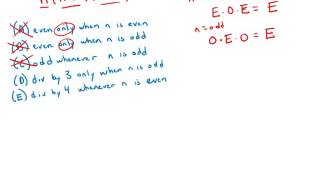 E·O·E = E
n = odd
O·E·O = E
(A) even only when n is even
(B) even only when n is odd
(C) odd whenever n is odd
(D) div by 3 only when n is odd
(E) div by 4 whenever n is even